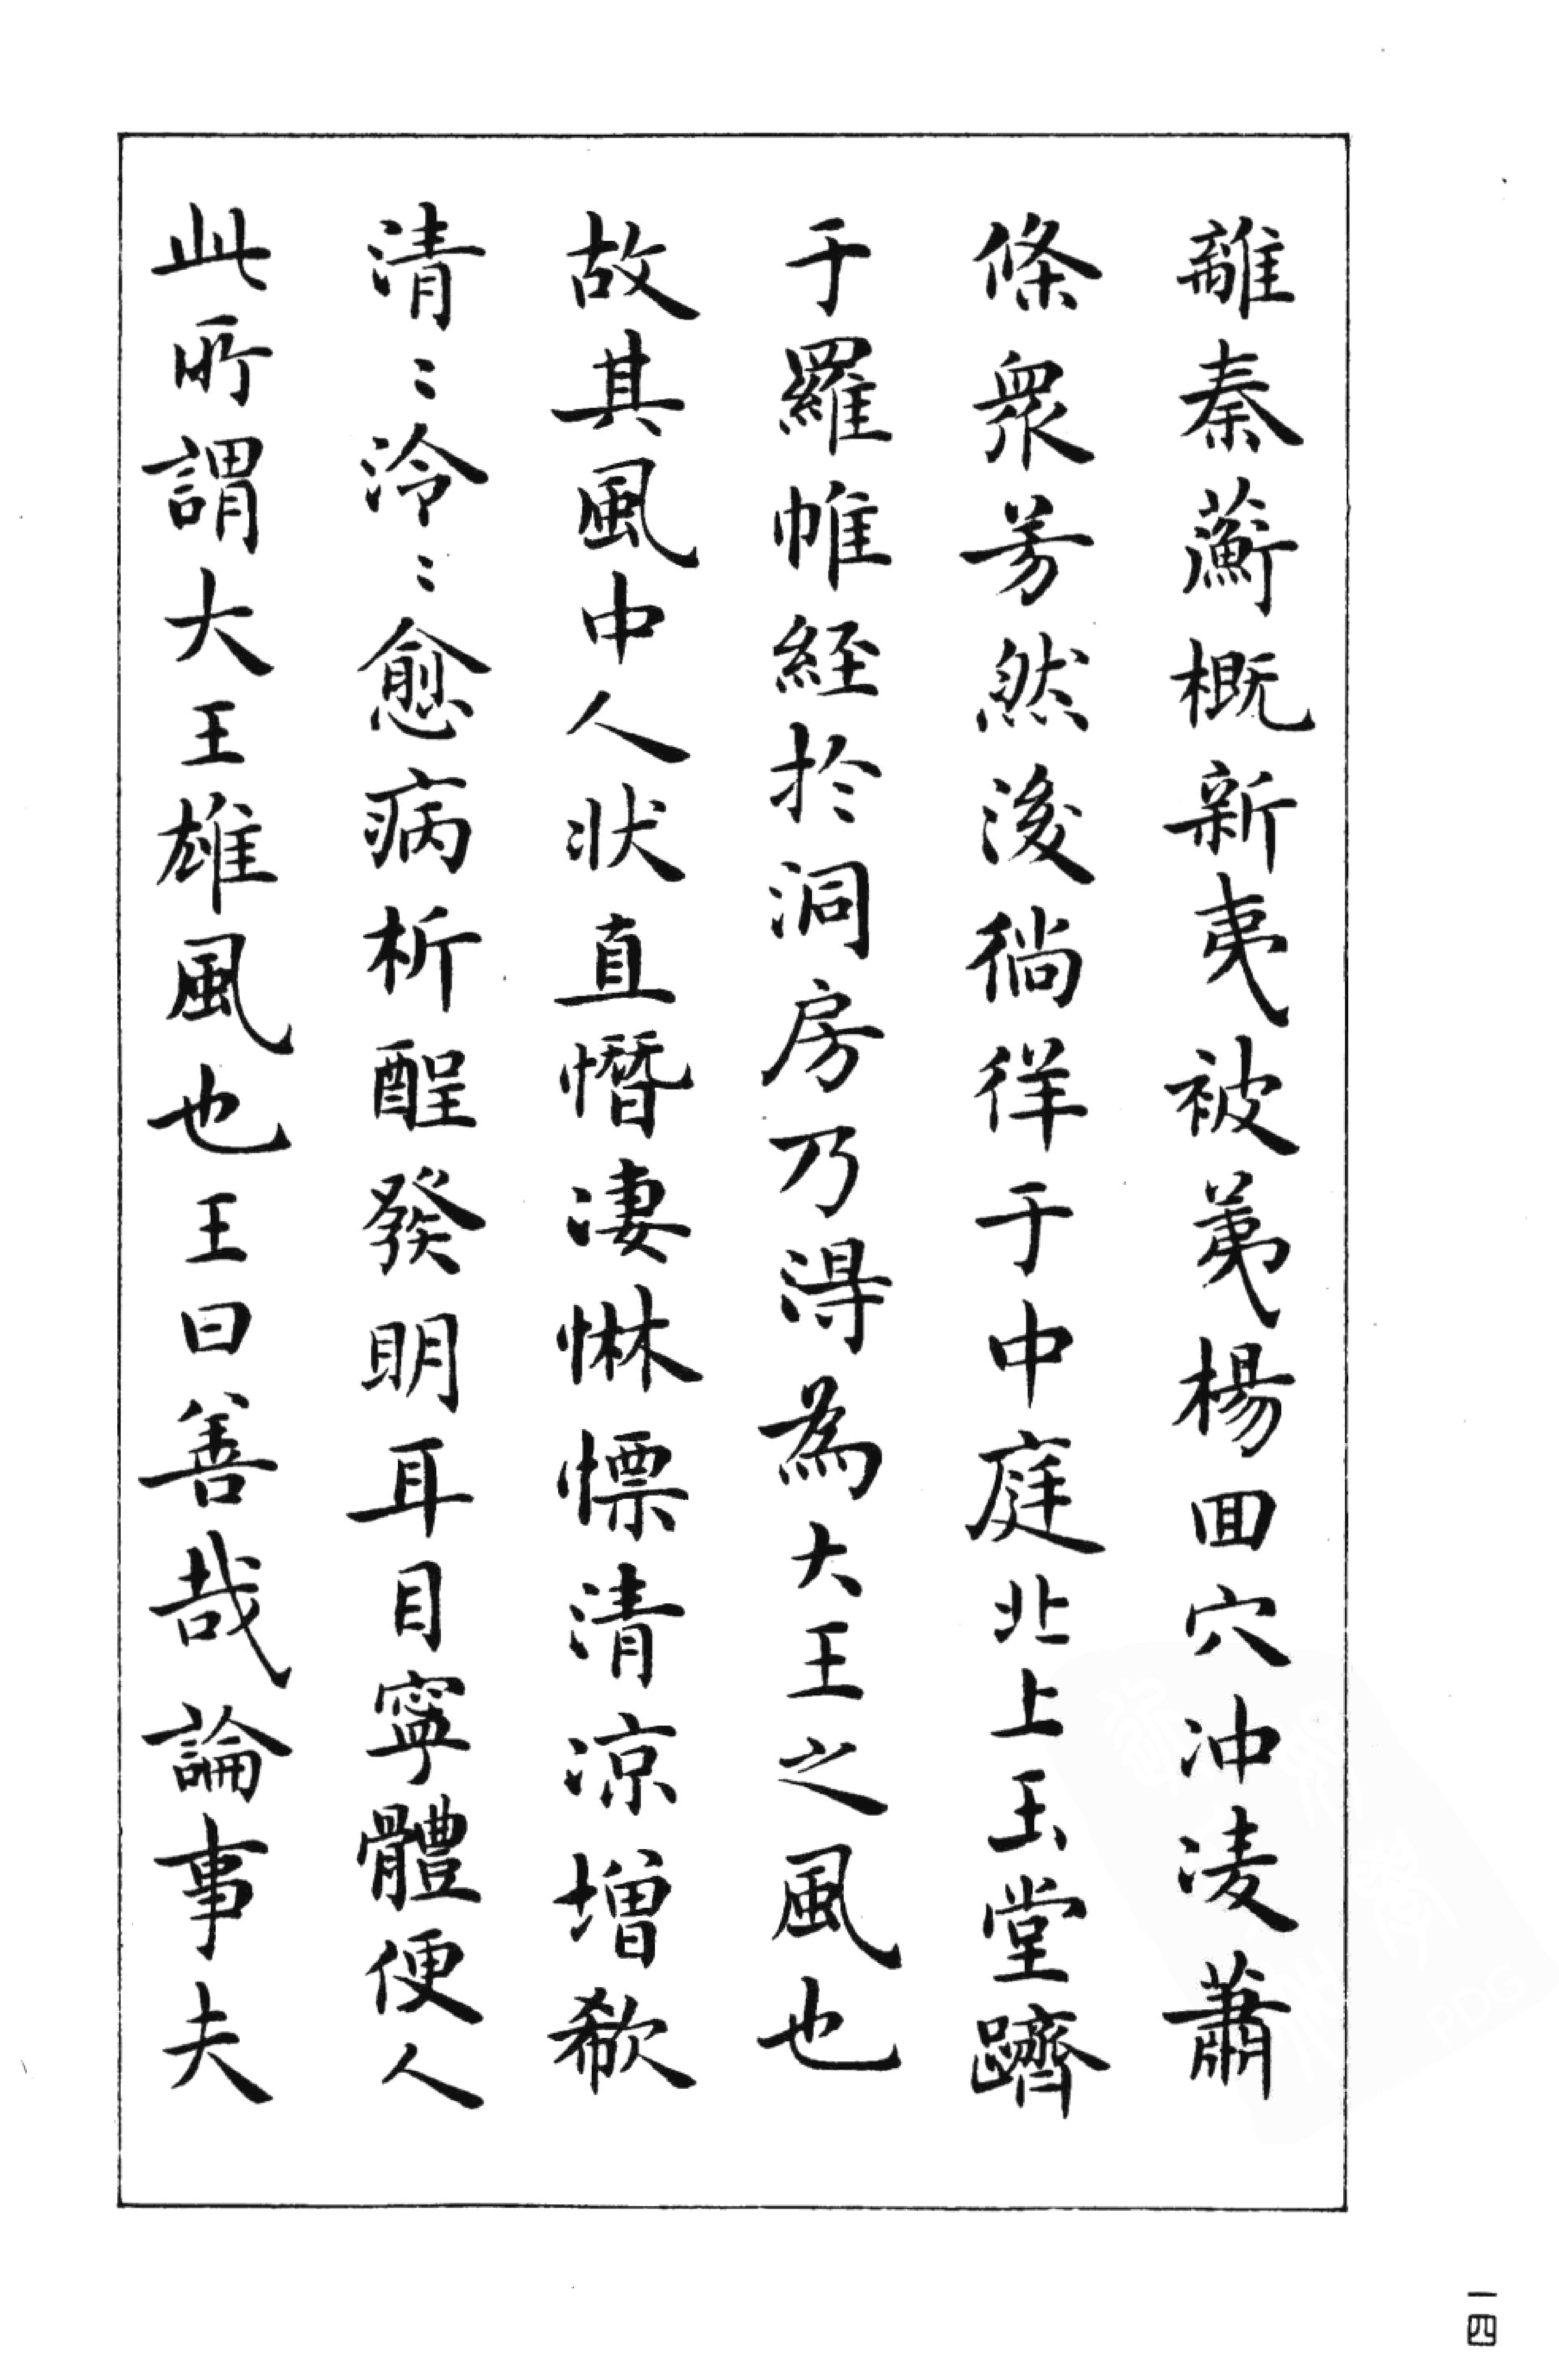 離秦蘅概新夷被荑楊回穴冲凌蕭
條衆芳然後徜徉于中庭北上玉堂躋
于羅帷經於洞房乃得為大王之風也
故其風中人状直憯凄惏慄清凉增欷
清〻泠〻愈病析酲發明耳目寧體便人
此所謂大王雄風也王曰善哉論事夫
一四